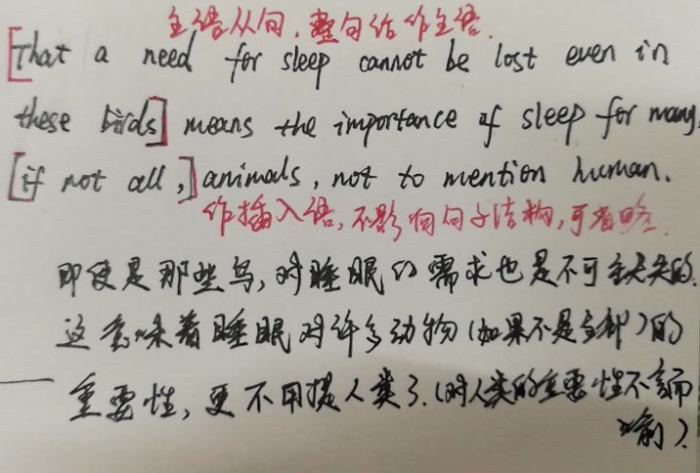 主语从句，整句话作主语.
[That a need for sleep cannot be lost even in
these birds] means the importance of sleep for many,
[if not all,] animals, not to mention human.
作插入语，不影响句子结构，可省略.
即使是那些鸟，对睡眠的需求也是不可丢失的.
这意味着睡眠对许多动物（如果不是全部）的
重要性，更不用提人类了.（对人类的重要性不言而
喻）.